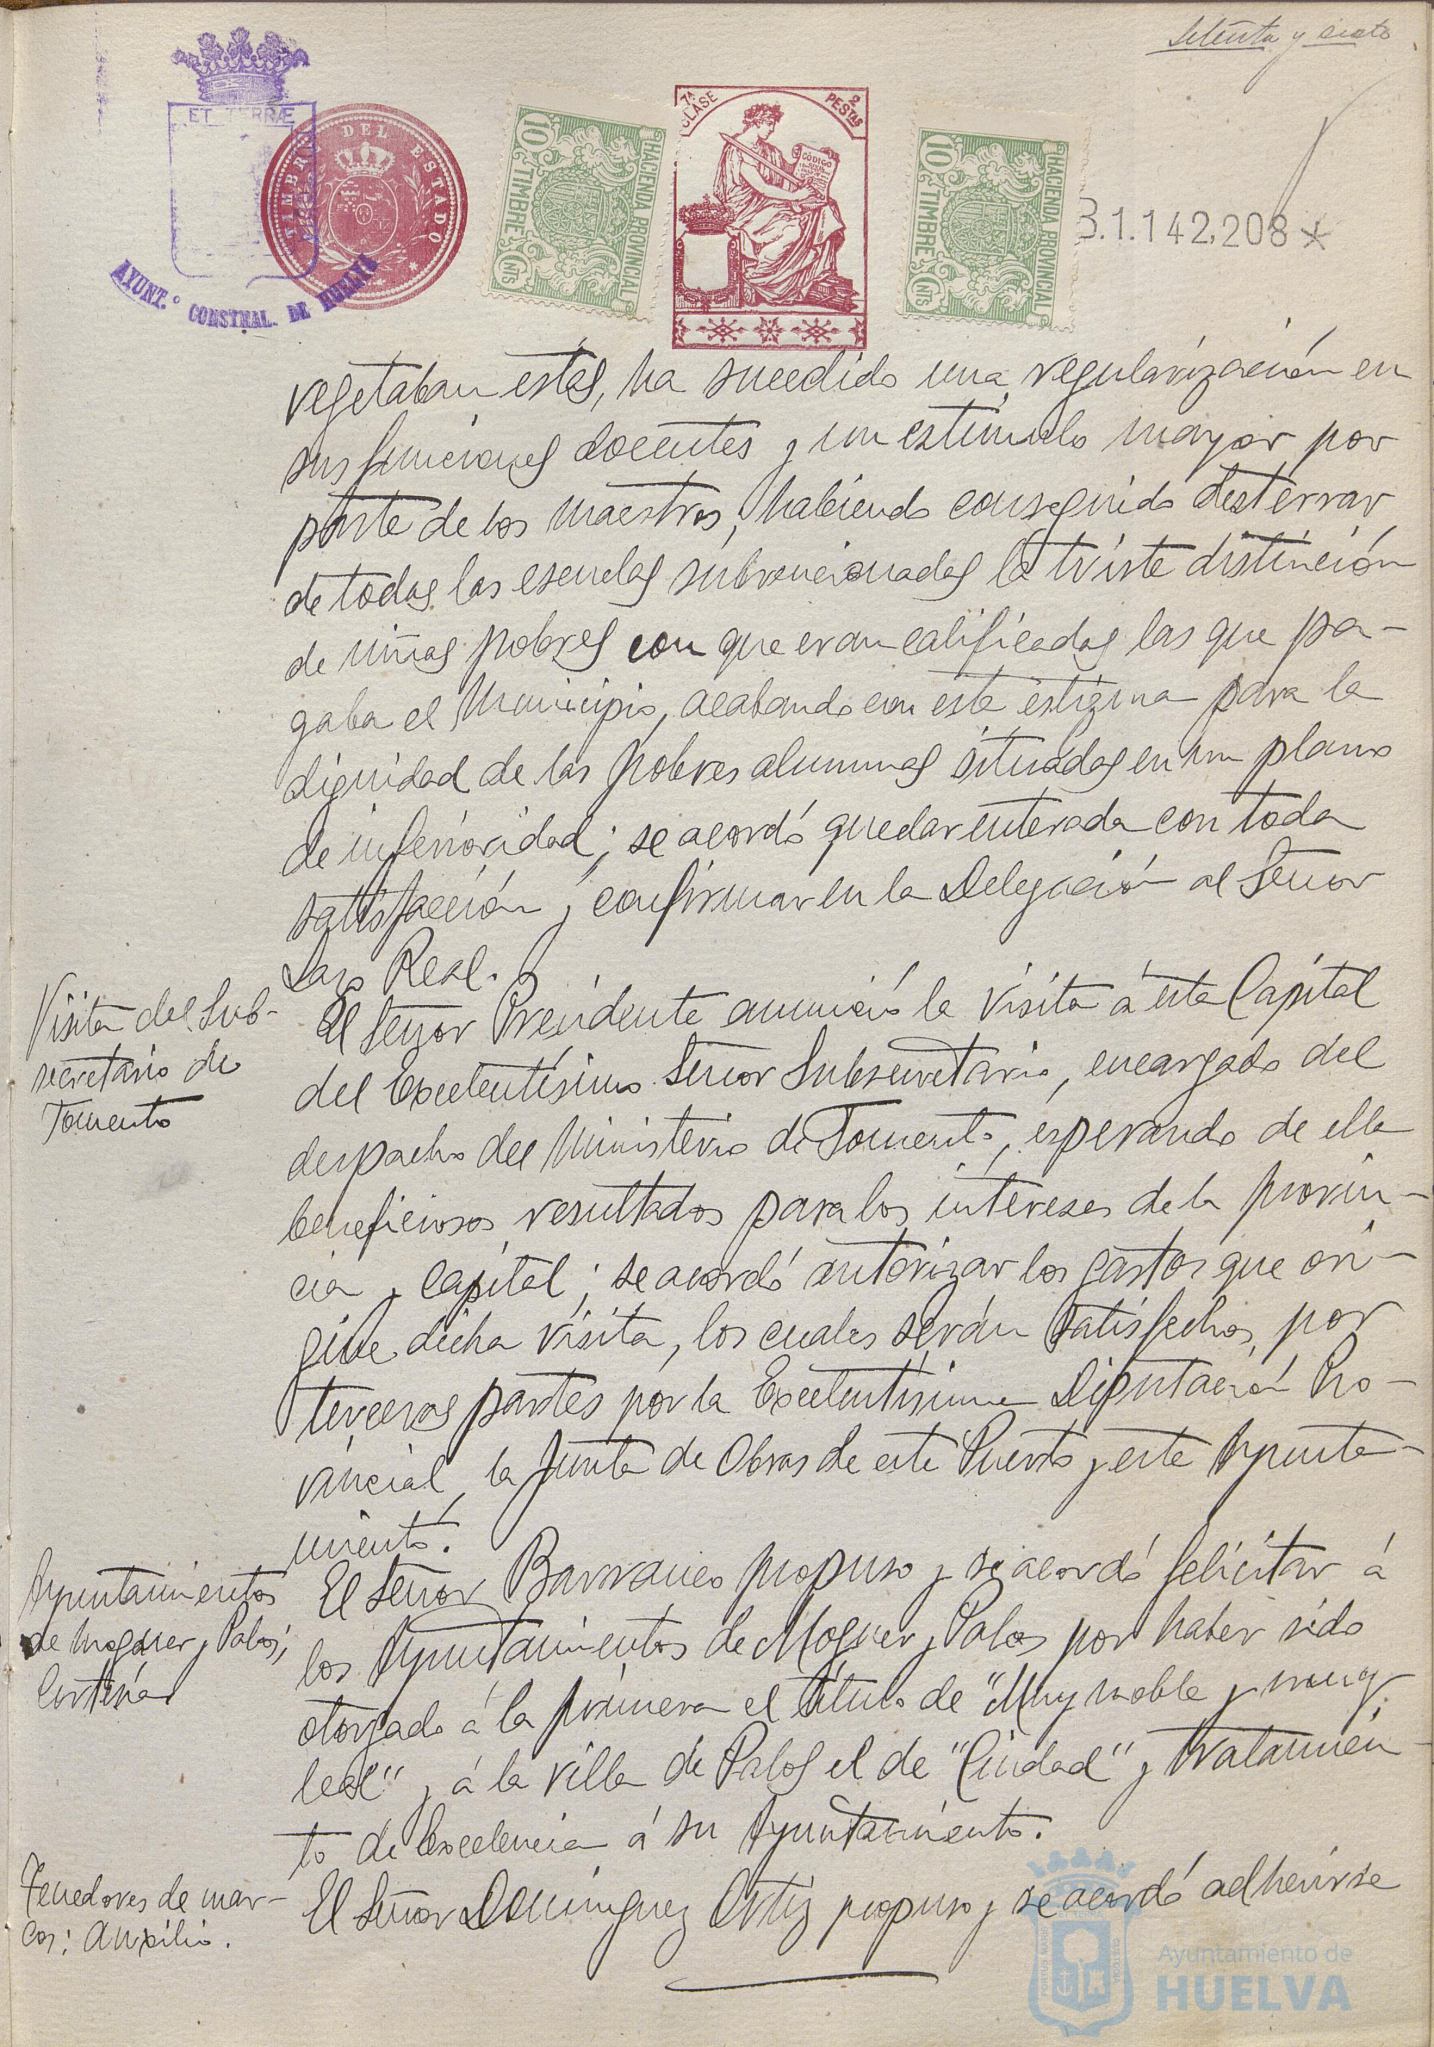 Setenta y siete
ET TERRÆ
TIMBRE DEL ESTADO
AYUNT.º CONSTNAL. DE HUELVA
10 Cts
TIMBRE
HACIENDA PROVINCIAL
7ª CLASE
2 PESTAS
CODIGO
10 Cts
TIMBRE
HACIENDA PROVINCIAL
B.1.142,208*
vegetaban éstas, ha sucedido una regularización en
sus funciones docentes y un estímulo mayor por
parte de los maestros, habiendo conseguido desterrar
de todas las escuelas subvencionadas la triste distinción
de niñas pobres con que eran calificadas las que pa-
gaba el Municipio, acabando con este estigma para la
dignidad de las pobres alumnas situadas en un plano
de inferioridad; se acordó quedar enterada con toda
satisfacción y confirmar en la Delegación al Señor
Lazo Real.
Visita del Sub-
secretario de
Fomento
El Señor Presidente anunció la visita á esta Capital
del Excelentísimo Señor Subsecretario, encargado del
despacho del Ministerio de Fomento, esperando de ella
beneficiosos resultados para los intereses de la provin-
cia y capital; se acordó autorizar los gastos que ori-
gine dicha visita, los cuales serán satisfechos por
terceras partes por la Excelentísima Diputación Pro-
vincial, la Junta de Obras de este Puerto y este Ayunta-
miento.
Ayuntamientos
de Moguer y Palos;
Cortesía
El Señor Barranco propuso y se acordó felicitar á
los Ayuntamientos de Moguer y Palos por haber sido
otorgado á la primera el título de "Muy noble y muy
leal" y á la villa de Palos el de "Ciudad" y tratamien-
to de Excelencia á su Ayuntamiento.
Tenedores de mar-
cos: Auxilio.
El Señor Domínguez Ortiz propuso y se acordó adherirse
Ayuntamiento de
HUELVA